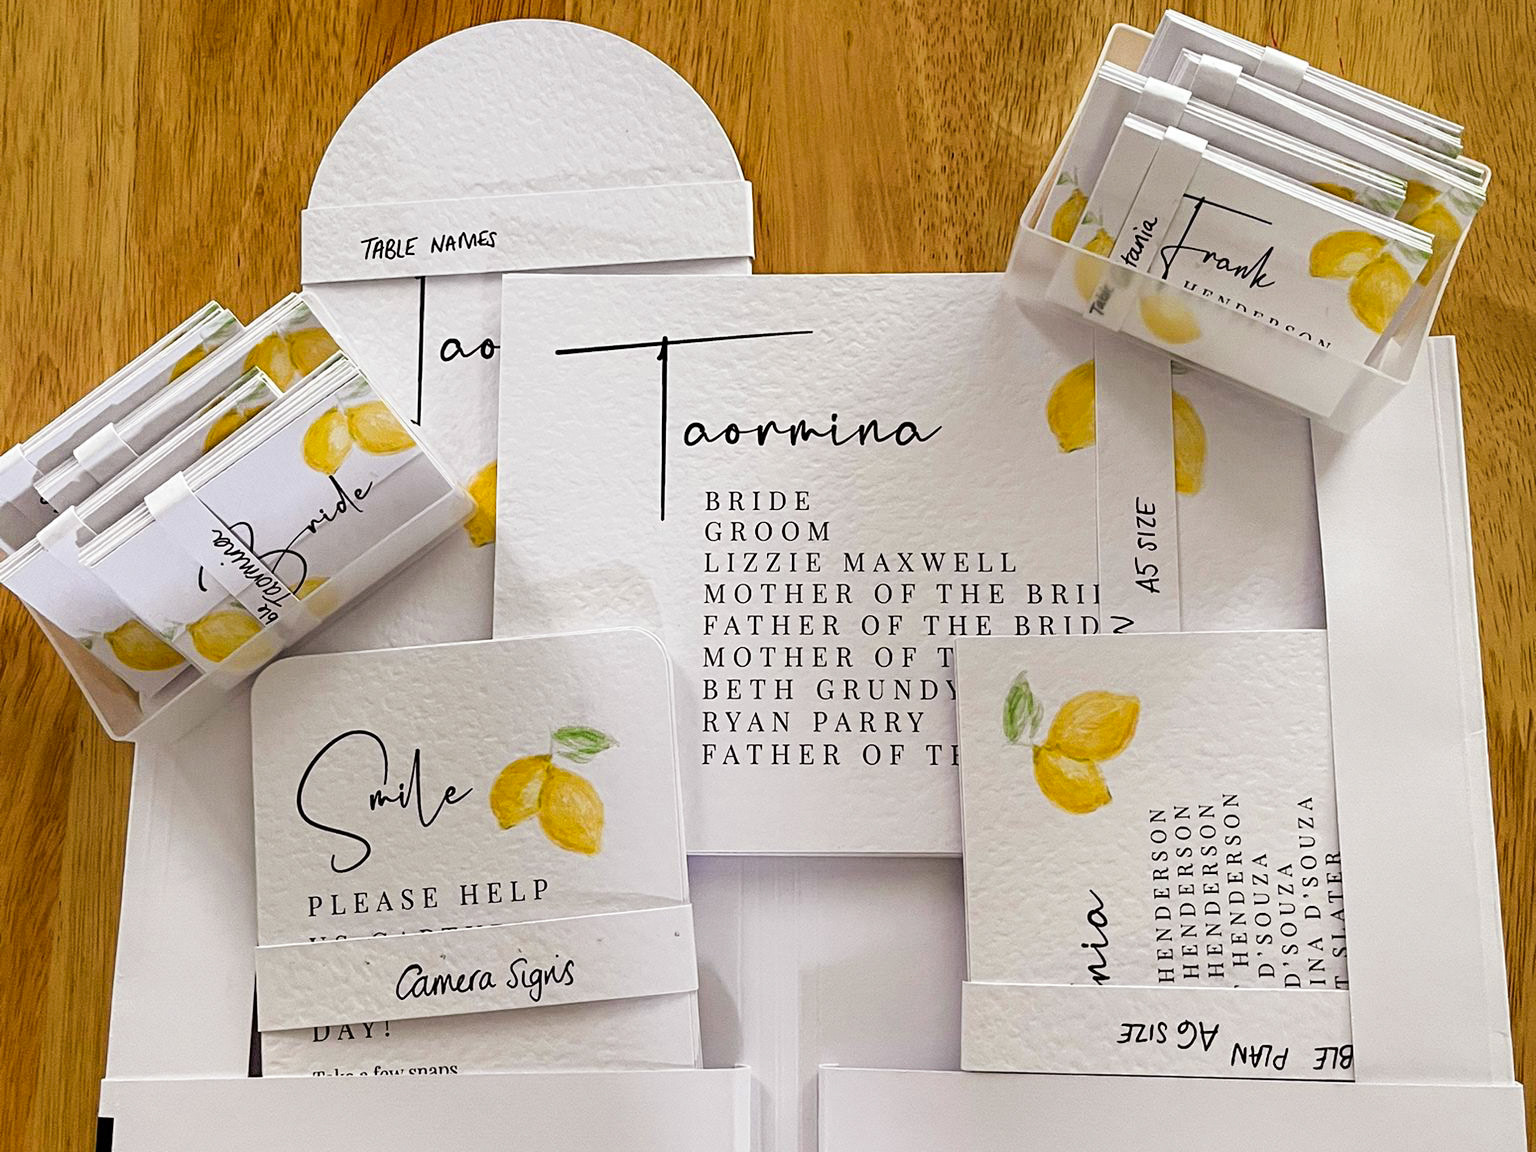 TABLE NAMES
Taormina
BRIDE
GROOM
LIZZIE MAXWELL
MOTHER OF THE
FATHER OF THE
MOTHER OF
BETH GRUNDY
RYAN PARRY
FATHER OF
A5 SIZE
Frank
HENDERSON
Bride
Taormina
Smile
PLEASE HELP
Camera Signs
DAY!
Take a few snaps
HENDERSON
HENDERSON
HENDERSON
HENDERSON
D'SOUZA
D'SOUZA
D'SOUZA
SLATER
A6 SIZE
PLAN